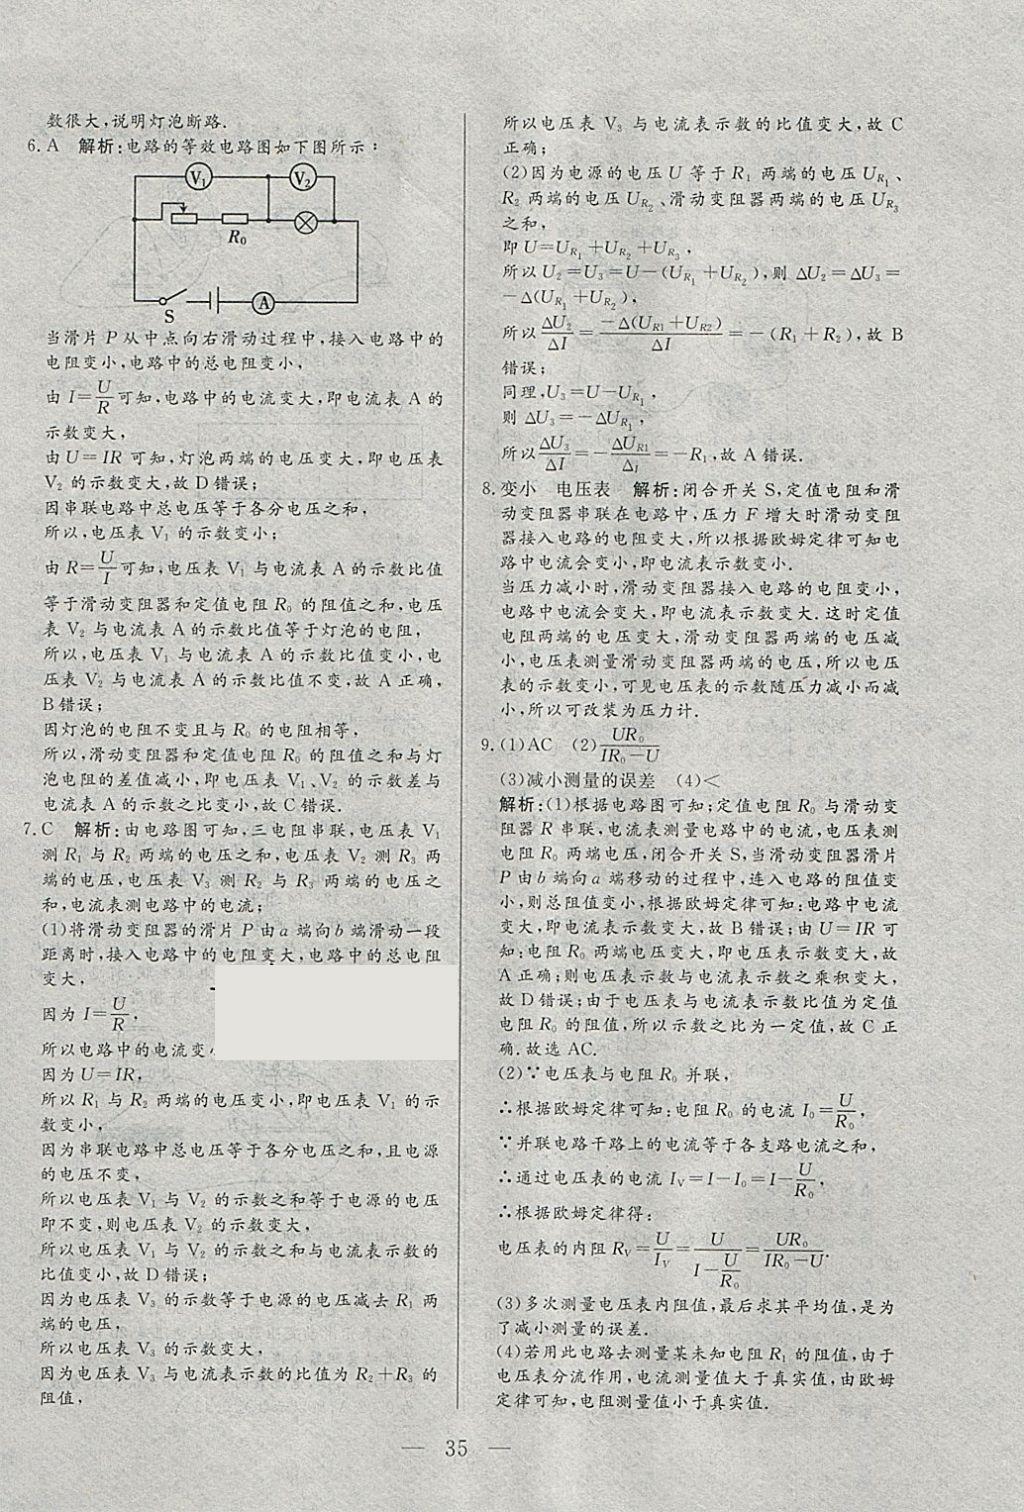 数很大,说明灯泡断路.
6. A 解析:电路的等效电路图如下图所示:
V₁
V₂
R₀
S
A
当滑片 P 从中点向右滑动过程中,接入电路中的
电阻变小,电路中的总电阻变小,
由 I=U/R 可知,电路中的电流变大,即电流表 A 的
示数变大,
由 U=IR 可知,灯泡两端的电压变大,即电压表
V₂ 的示数变大,故 D 错误;
因串联电路中总电压等于各分电压之和,
所以,电压表 V₁ 的示数变小;
由 R=U/I 可知,电压表 V₁ 与电流表 A 的示数比值
等于滑动变阻器和定值电阻 R₀ 的阻值之和,电压
表 V₂ 与电流表 A 的示数比值等于灯泡的电阻,
所以,电压表 V₁ 与电流表 A 的示数比值变小,电
压表 V₂ 与电流表 A 的示数比值不变,故 A 正确,
B 错误;
因灯泡的电阻不变且与 R₀ 的电阻相等,
所以,滑动变阻器和定值电阻 R₀ 的阻值之和与灯
泡电阻的差值减小,即电压表 V₁、V₂ 的示数差与
电流表 A 的示数之比变小,故 C 错误.
7. C 解析:由电路图可知,三电阻串联,电压表 V₁
测 R₁ 与 R₂ 两端的电压之和,电压表 V₂ 测 R₃ 两
端的电压,电压表 V₃ 测 R₂ 与 R₃ 两端的电压之
和,电流表测电路中的电流;
(1)将滑动变阻器的滑片 P 由 a 端向 b 端滑动一段
距离时,接入电路中的电阻变大,电路中的总电阻
变大,
因为 I=U/R,
所以电路中的电流变
因为 U=IR,
所以 R₁ 与 R₂ 两端的电压变小,即电压表 V₁ 的示
数变小,
因为串联电路中总电压等于各分电压之和,且电源
的电压不变,
所以电压表 V₁ 与 V₂ 的示数之和等于电源的电压
即不变,则电压表 V₂ 的示数变大,
所以电压表 V₁ 与 V₂ 的示数之和与电流表示数的
比值变小,故 D 错误;
因为电压表 V₃ 的示数等于电源的电压减去 R₁ 两
端的电压,
所以电压表 V₃ 的示数变大,
因为电压表 V₃ 与电流表示数的比值为 R₂+R₃ 的
阻值,
所以电压表 V₃ 与电流表示数的比值变大,故 C
正确;
(2)因为电源的电压 U 等于 R₁ 两端的电压 U_R₁、
R₂ 两端的电压 U_R₂、滑动变阻器两端的电压 U_R₃
之和,
即 U=U_R₁+U_R₂+U_R₃,
所以 U₂=U₃=U-(U_R₁+U_R₂),则 ΔU₂=ΔU₃=
-Δ(U_R₁+U_R₂),
所以 ΔU₂/ΔI = -Δ(U_R1+U_R2)/ΔI = -(R₁+R₂),故 B
错误;
同理,U₃=U-U_R₁,
则 ΔU₃=-ΔU_R₁,
所以 ΔU₃/ΔI=-ΔU_R1/ΔI=-R₁,故 A 错误.
8. 变小 电压表 解析:闭合开关 S,定值电阻和滑
动变阻器串联在电路中,压力 F 增大时滑动变阻
器接入电路的电阻变大,所以根据欧姆定律可知电
路中电流会变小,即电流表示数变小.
当压力减小时,滑动变阻器接入电路的电阻变小,
电路中电流会变大,即电流表示数变大.这时定值
电阻两端的电压变大,滑动变阻器两端的电压减
小,电压表测量滑动变阻器两端的电压,所以电压
表的示数变小,可见电压表的示数随压力减小而减
小,所以可改装为压力计.
9. (1)AC (2)UR₀/(IR₀-U)
(3)减小测量的误差 (4)<
解析:(1)根据电路图可知:定值电阻 R₀ 与滑动变
阻器 R 串联,电流表测量电路中的电流,电压表测
电阻 R₀ 两端电压,闭合开关 S,当滑动变阻器滑片
P 由 b 端向 a 端移动的过程中,连入电路的阻值变
小,则总阻值变小,根据欧姆定律可知:电路中电流
变大,即电流表示数变大,故 B 错误;由 U=IR 可
知:电阻 R₀ 两端电压变大,即电压表示数变大,故
A 正确;则电压表示数与电流表示数之乘积变大,
故 D 错误;由于电压表与电流表示数比值为定值
电阻 R₀ 的阻值,所以示数之比为一定值,故 C 正
确.故选 AC.
(2)∵电压表与电阻 R₀ 并联,
∴根据欧姆定律可知:电阻 R₀ 的电流 I₀=U/R₀,
∵并联电路干路上的电流等于各支路电流之和,
∴通过电压表的电流 I_V=I-I₀=I-U/R₀,
∴根据欧姆定律得:
电压表的内阻 R_V=U/I_V=U/(I-U/R₀)=UR₀/(IR₀-U).
(3)多次测量电压表内阻值,最后求其平均值,是为
了减小测量的误差.
(4)若用此电路去测量某未知电阻 R₁ 的阻值,由于
电压表分流作用,电流测量值大于真实值,由欧姆
定律可知,电阻测量值小于真实值.
— 35 —